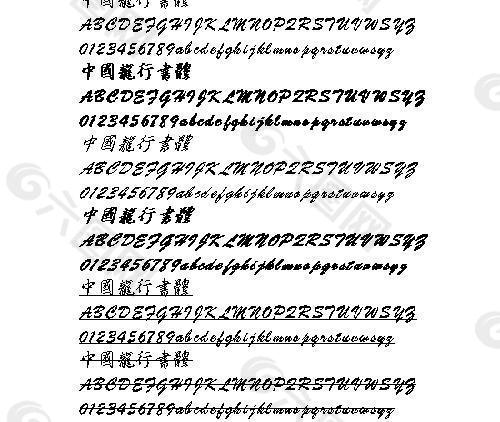 中國龍行書體
ABCDEFGHIJKLMNOPQRSTUVWXYZ
0123456789abcdefghijklmnopqrstuvwxyz
中國龍行書體
ABCDEFGHIJKLMNOPQRSTUVWXYZ
0123456789abcdefghijklmnopqrstuvwxyz
中國龍行書體
ABCDEFGHIJKLMNOPQRSTUVWXYZ
0123456789abcdefghijklmnopqrstuvwxyz
中國龍行書體
ABCDEFGHIJKLMNOPQRSTUVWXYZ
0123456789abcdefghijklmnopqrstuvwxyz
中國龍行書體
ABCDEFGHIJKLMNOPQRSTUVWXYZ
0123456789abcdefghijklmnopqrstuvwxyz
中國龍行書體
ABCDEFGHIJKLMNOPQRSTUVWXYZ
0123456789abcdefghijklmnopqrstuvwxyz